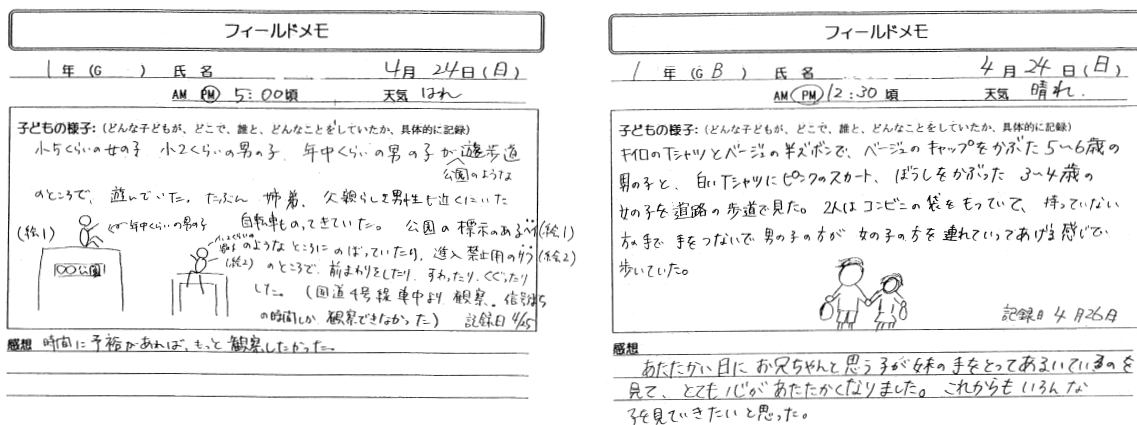 フィールドメモ
1年（G　　） 氏名　　4月24日（日）
AM PM 5:00頃 天気 はれ
子どもの様子:（どんな子どもが、どこで、誰と、どんなことをしていたか、具体的に記録）
小5くらいの女の子 小2くらいの男の子 年中くらいの男の子が 歩道
公園のような
のところで、遊んでいた。たぶん 姉弟、父親らしき男性も近くにいた
自転車ものってきていた。公園の標示のある (絵1)
(絵1) 年中くらいの男の子
のようなところにのぼっていたり、進入禁止用の (絵2)
(絵2) のところで、前まわりをしたり、すわったり、くぐったり
〇〇公園
した。（国道4号線車中より観察。信号待ち
の時間しか観察できなかった） 記録日 4/25
感想 時間に予裕があれば、もっと観察したかった。
フィールドメモ
1年（G B） 氏名　　4月24日（日）
AM PM 12:30頃 天気 晴れ.
子どもの様子:（どんな子どもが、どこで、誰と、どんなことをしていたか、具体的に記録）
キイロのTシャツとベージュの半ズボンで、ベージュのキャップをかぶた5〜6歳の
男の子と、白いTシャツにピンクのスカート、ぼうしをかぶった 3〜4歳の
女の子を道路の歩道で見た。2人はコンビニの袋をもっていて、持っていない
方の手で手をつないで男の子の方が女の子の方を連れていってあげる感じで
歩いていた。
記録日 4月26日
感想
あたたかい日にお兄ちゃんと思う子が妹の手をとってあるいているのを
見て、とても心があたたかくなりました。これからもいろんな
子を見ていきたいと思った。